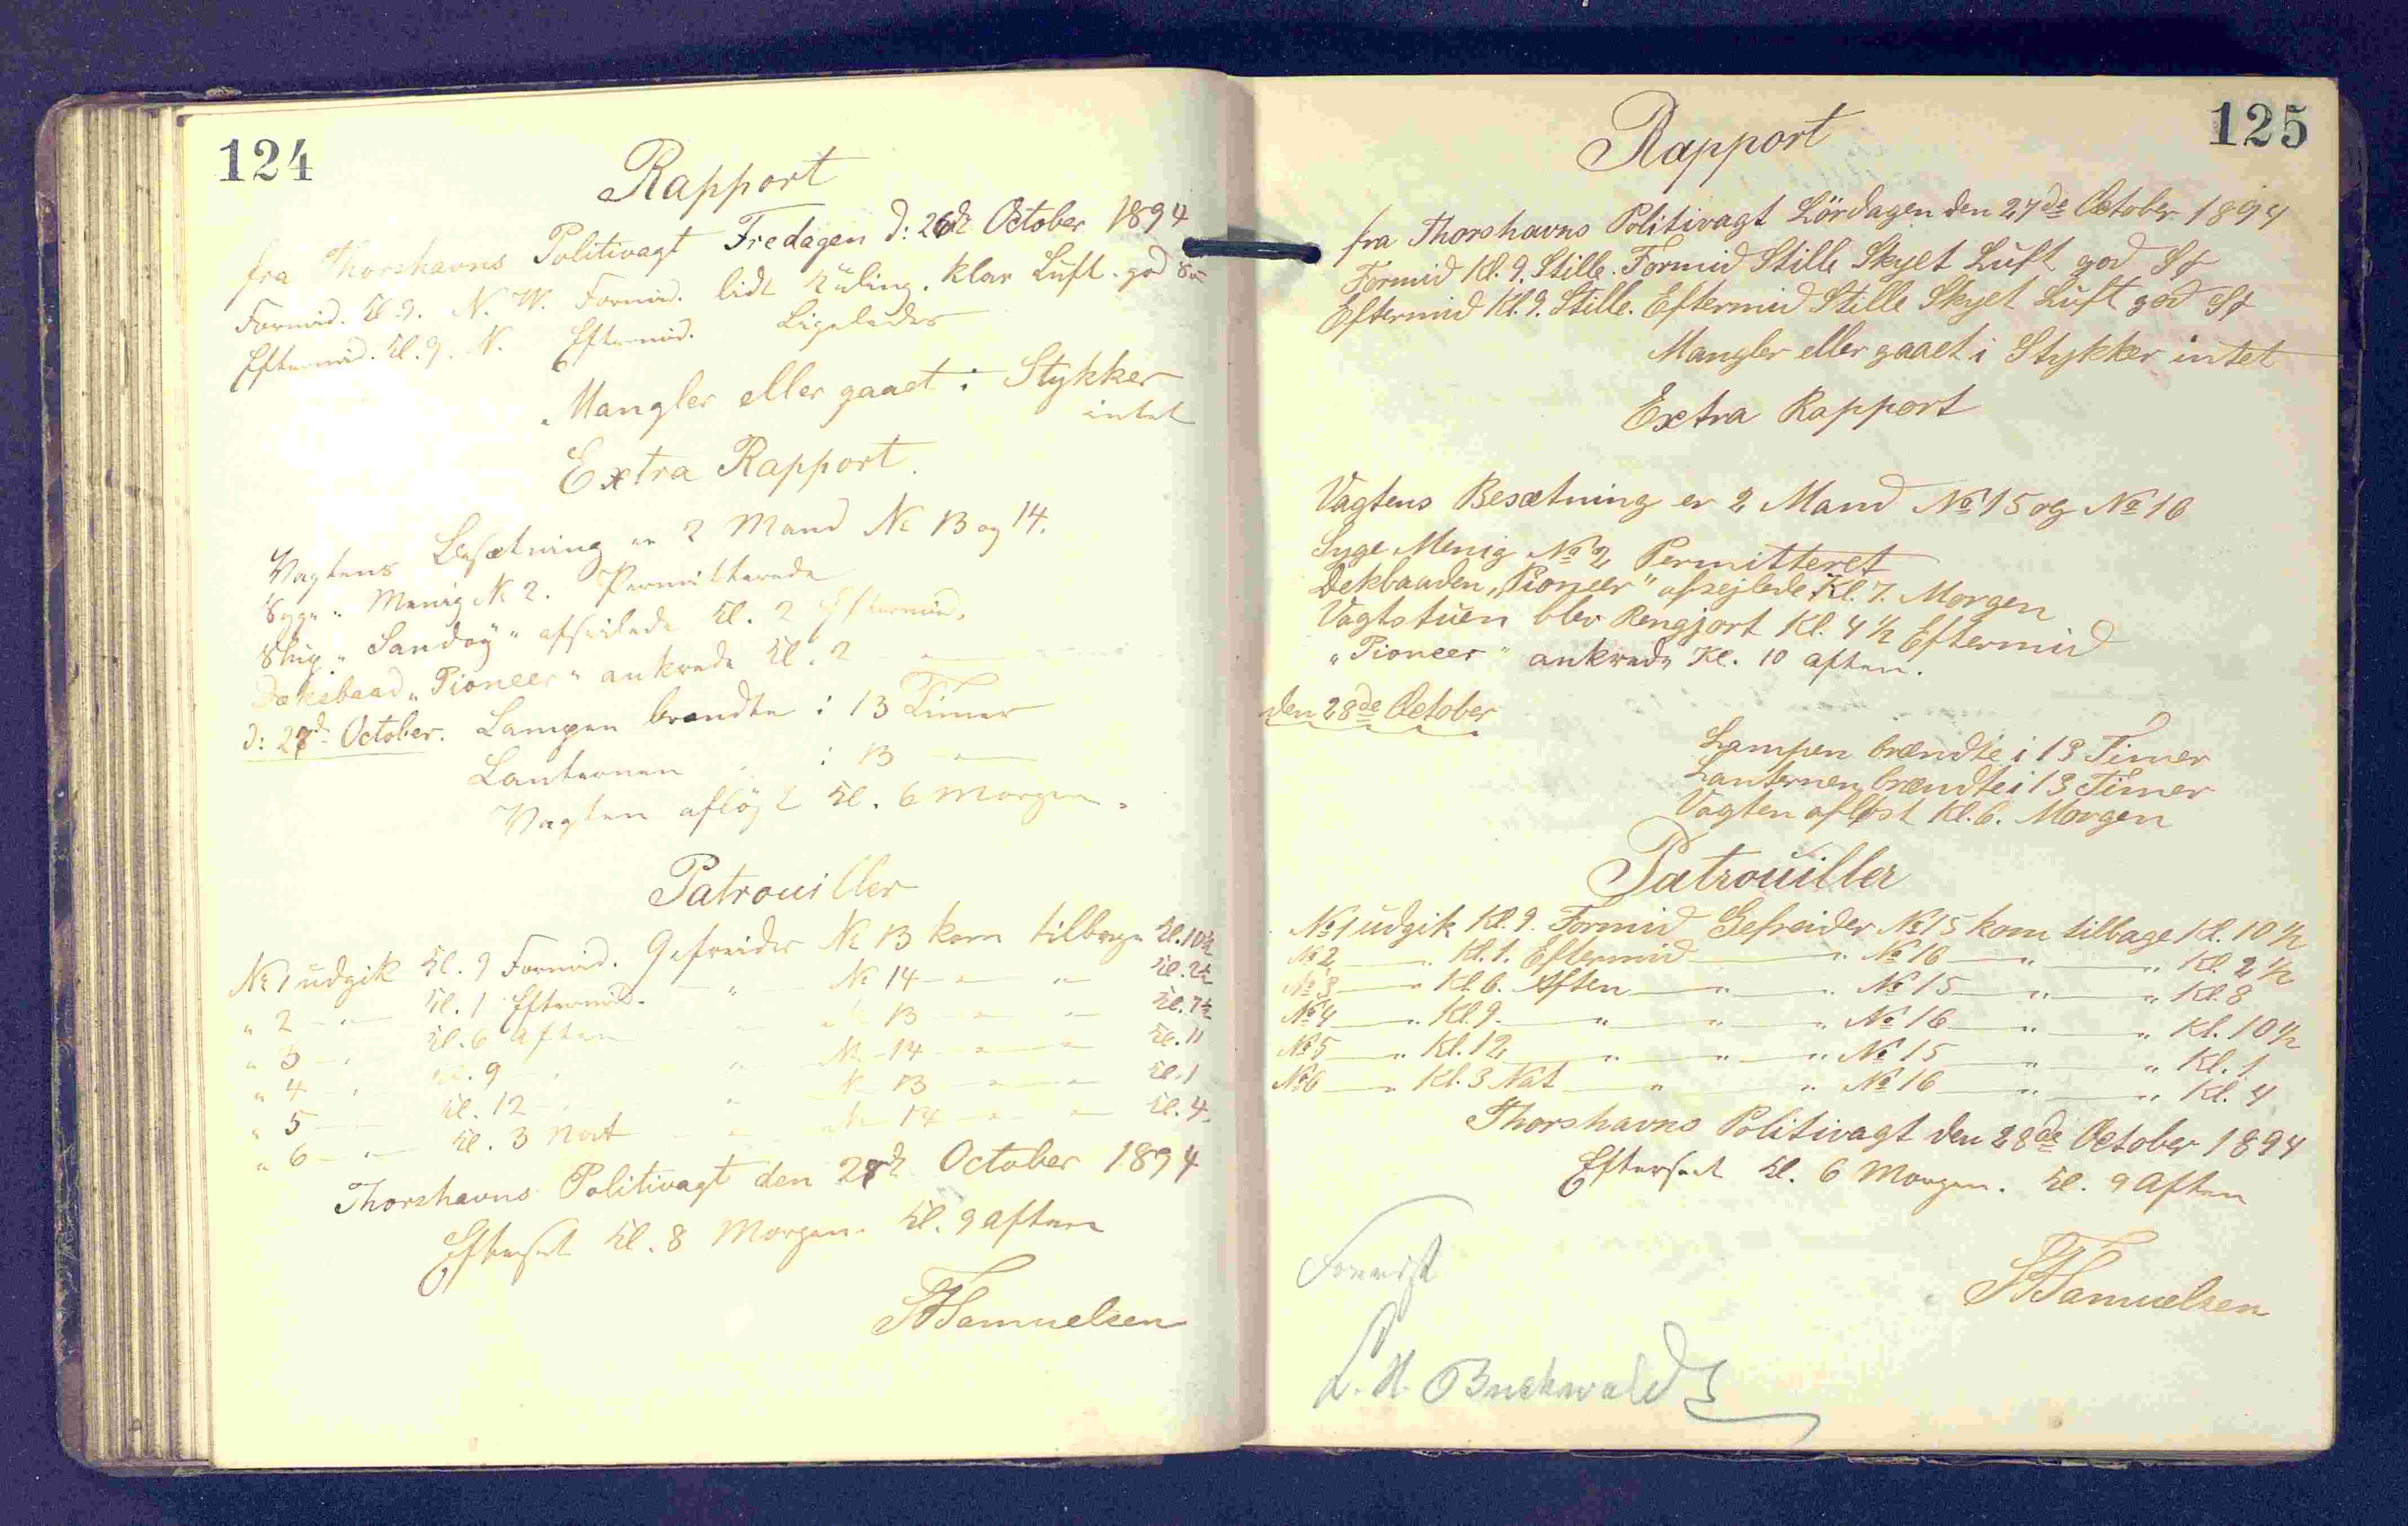 124
Rapport
fra Thorshavns Politivagt Fredagen d: 26de October 1894
Formid. Kl. 9. N. W. Formid. lidt Kuling. klar Luft. god Sø
Eftermid. Kl. 9. N. Eftermid. Ligeledes
Mangler eller gaaet i Stykker
intet
Extra Rapport.
Vagtens Besætning er 2 Mand No 13 og 14.
Syge: Menig No 2. Permitterede
Slup "Sandoy" afseilede Kl. 2 Eftermid.
Dæksbaad "Pioneer" ankrede Kl. 2 —"—
d: 27de October. Lampen brændte i 13 Timer
Lanternen " i 13 —"—
Vagten afløst Kl. 6 Morgen.
Patrouiller
No 1 udgik Kl. 9 Formid. Gefreider No 13 kom tilbage Kl. 10½
" 2 —"— Kl. 1 Eftermid. — " — No 14 —"— " Kl. 2½
" 3 —"— Kl. 6 Aften " No 13 —"— " Kl. 7½
" 4 —"— Kl. 9 " " No 14 —"— " Kl. 11
" 5 —"— Kl. 12 " " No 13 —"— " Kl. 1
" 6 —"— Kl. 3 Nat " No 14 —"— " Kl. 4.
Thorshavns Politivagt den 27de October 1894
Efterseet Kl. 8 Morgen. Kl. 9 Aften
Samuelsen
125
Rapport
fra Thorshavns Politivagt Lördagen den 27de October 1894
Formid Kl. 9. Stille. Formid Stille Skyet Luft god Sø
Eftermid Kl. 9. Stille. Eftermid Stille Skyet Luft god Sø
Mangler eller gaaet i Stykker intet
Extra Rapport
Vagtens Besætning er 2 Mand No 15 og No 16
Syge Menig No 2 Permitteret
Dekbaaden "Pioneer" afsejlede Kl. 7. Morgen
Vagtstuen blev Rengjort Kl. 4½ Eftermid
"Pioneer" ankrede Kl. 10 aften.
den 28de October
Lampen brændte i 13 Timer
Lanternen brændte i 13 Timer
Vagten afløst Kl. 6. Morgen
Patrouiller
No 1 udgik Kl. 9. Formid Gefreider No 15 kom tilbage Kl. 10½
No 2 —"— Kl. 1. Eftermid —"— No 16 —"— " Kl. 2½
No 3 —"— Kl. 6. Aften —"— " No 15 —"— " Kl. 8
No 4 —"— Kl. 9. —"— " " No 16 —"— " Kl. 10½
No 5 —"— Kl. 12 —"— " " No 15 —"— " Kl. 1
No 6 —"— Kl. 3 Nat —"— " No 16 —"— " Kl. 4
Thorshavns Politivagt den 28de October 1894
Efterseet Kl. 6 Morgen. Kl. 9 Aften
Samuelsen
Forevist
L. H. Buchwald